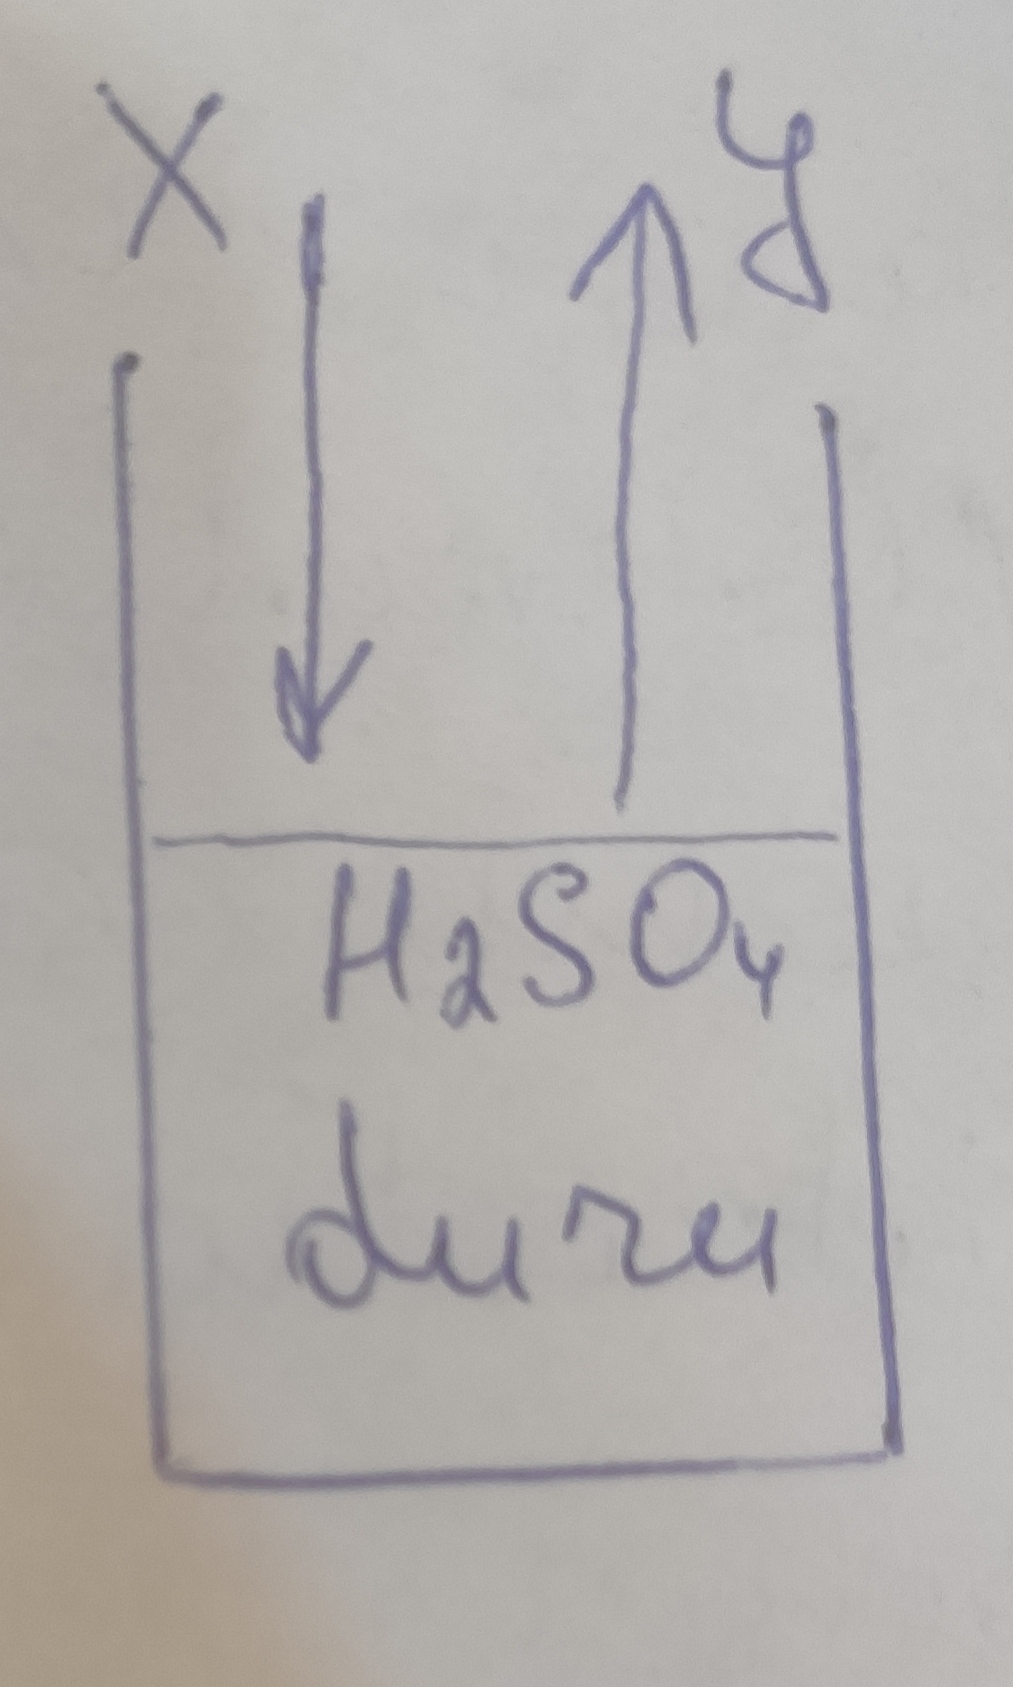 X y
H₂SO₄
duru